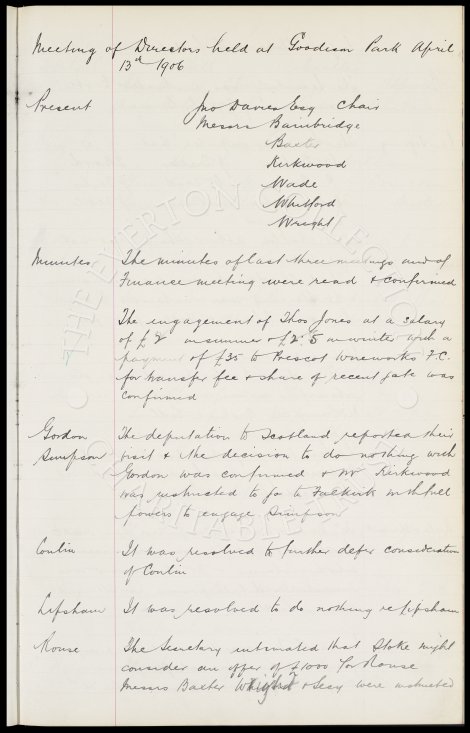 Meeting of Directors held at Goodison Park April
13th 1906
Present Jno Davies Esq Chair
Messrs Bainbridge
Baxter
Kirkwood
Wade
Whitford
Wright
Minutes The minutes of last three meetings and of
Finance meeting were read & confirmed
The engagement of Thos Jones at a salary
of £2 in summer & £2.5 in winter with a
payment of £35 to Prescot Wireworks F.C.
for transfer fee & share of recent gate was
confirmed
Gordon The deputation to Scotland reported their
Simpson visit & the decision to do nothing with
Gordon was confirmed & Mr Kirkwood
was instructed to go to Falkirk with full
powers to engage Simpson
Conlin It was resolved to further defer consideration
of Conlin
Lipsham It was resolved to do nothing re Lipsham
Rouse The Secretary intimated that Stoke might
consider an offer of £1000 for Rouse
Messrs Baxter Wright & Secy were instructed
THE EVERTON COLLECTION
CHARITABLE